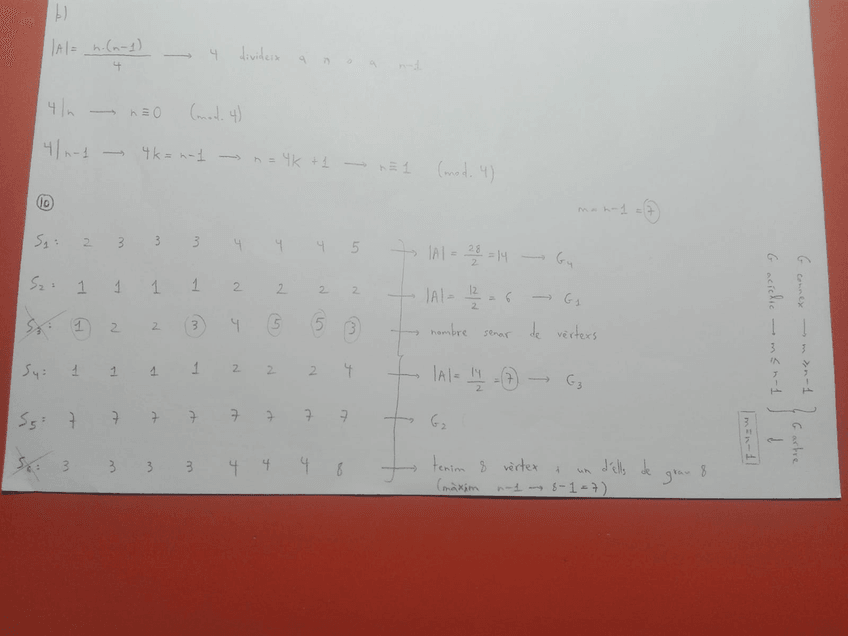 b)
|A| = n·(n-1)/4 → 4 divideix a n o a n-1
4|n → n≡0 (mod. 4)
4|n-1 → 4k = n-1 → n = 4k +1 → n≡1 (mod. 4)
10
m = n-1 = 7
S1: 2 3 3 3 4 4 4 5 → |A| = 28/2 = 14 → G4
S2: 1 1 1 1 2 2 2 2 → |A| = 12/2 = 6 → G1
S3: 1 2 2 3 4 5 5 3 → nombre senar de vèrtexs
S4: 1 1 1 1 2 2 2 4 → |A| = 14/2 = 7 → G3
S5: 7 7 7 7 7 7 7 7 → G2
S6: 3 3 3 3 4 4 4 8 → tenim 8 vèrtex i un d'ells de grau 8
(màxim n-1 → 8-1=7)
G connex → m ≥ n-1
G acíclic → m ≤ n-1
G arbre
⇓
m = n-1